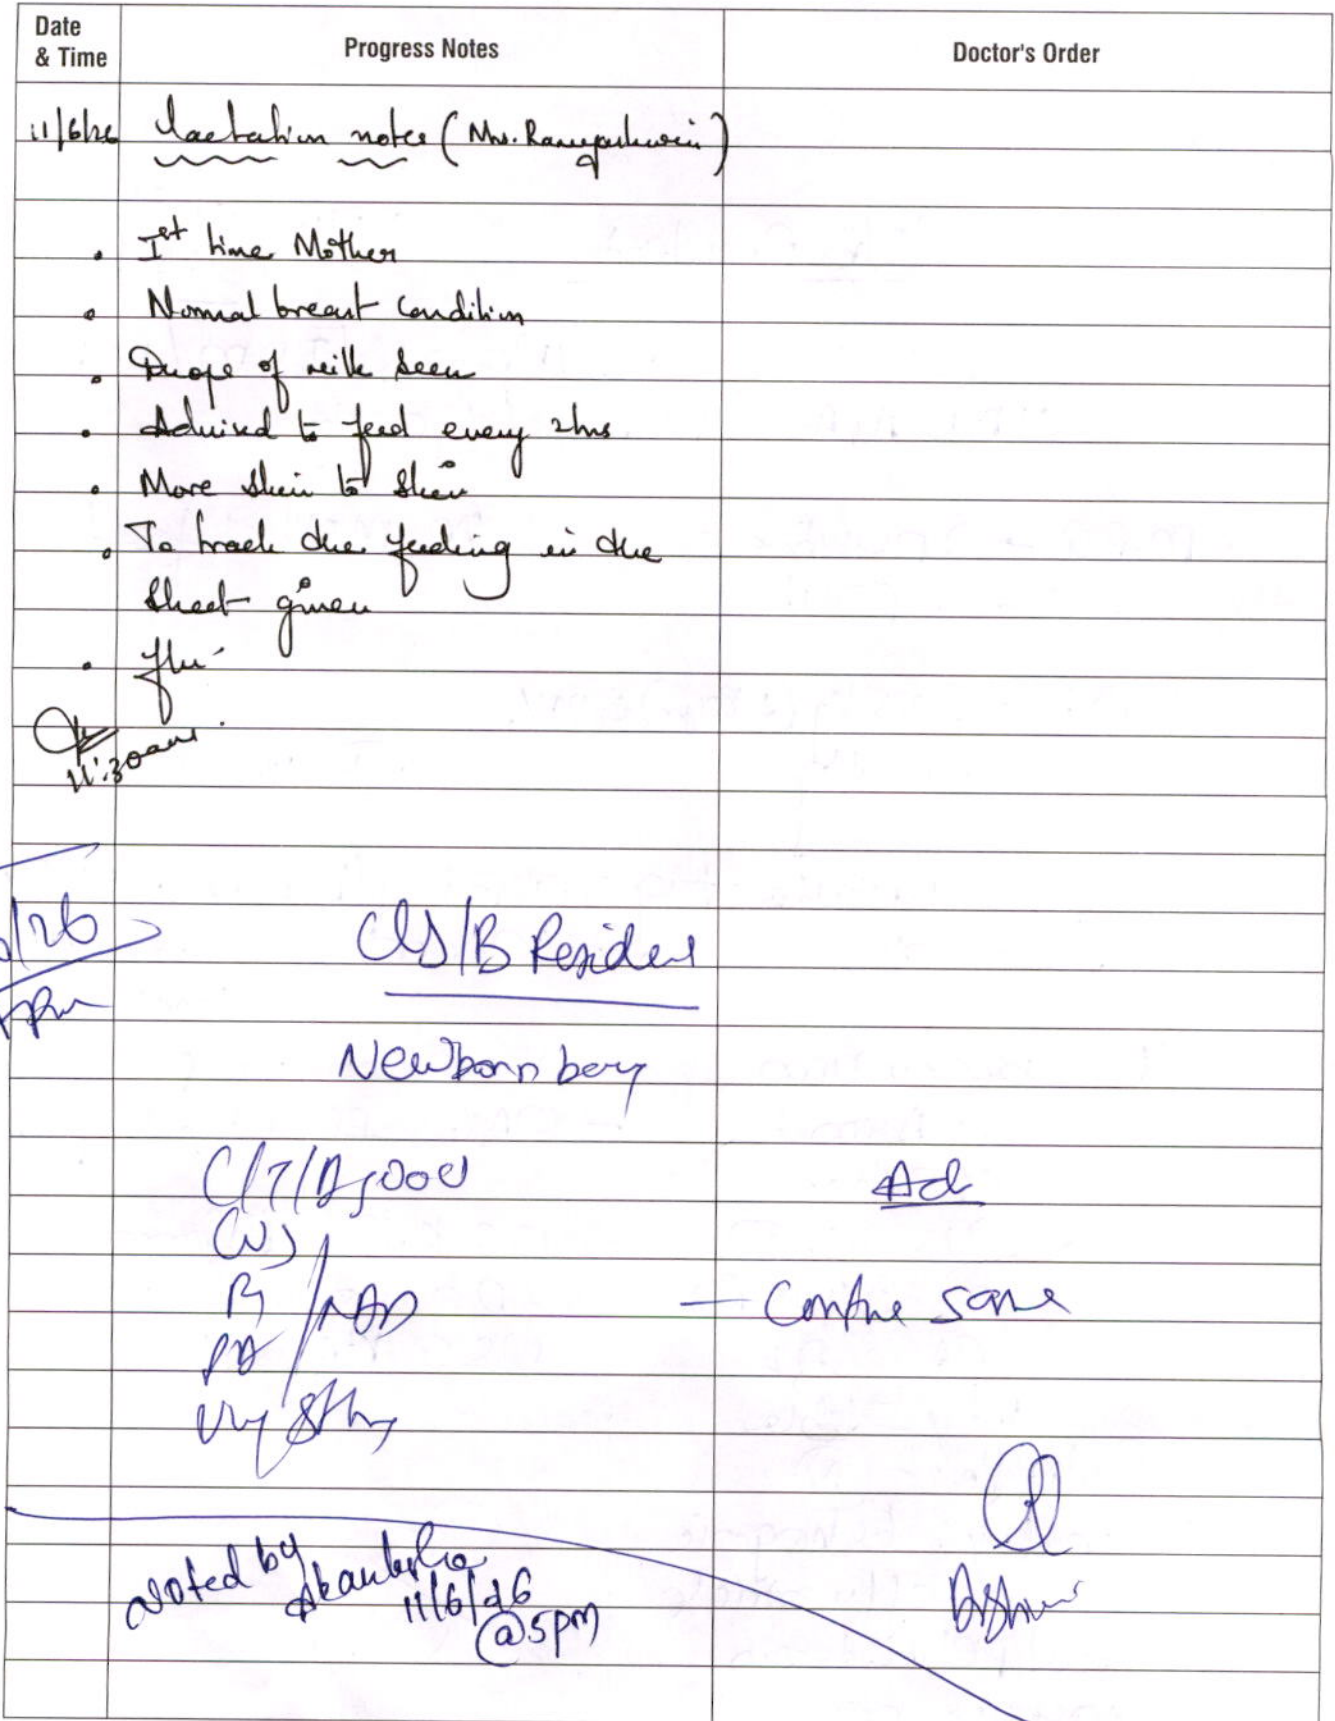 Date & Time
Progress Notes
Doctor's Order
11/6/26 Lactation notes (Mrs.
• Ist time Mother
• Normal breast condition
• Drops of milk seen
• Advised to feed every 2hrs
• More skin to skin
• To track the feeding in the
sheet given
11:30am
/26
C/S/B Resident
Newborn boy
C/T/A good
Ad
CVS
RS / NAD
- Continue same
PA
Noted by
11/6/26
@5pm